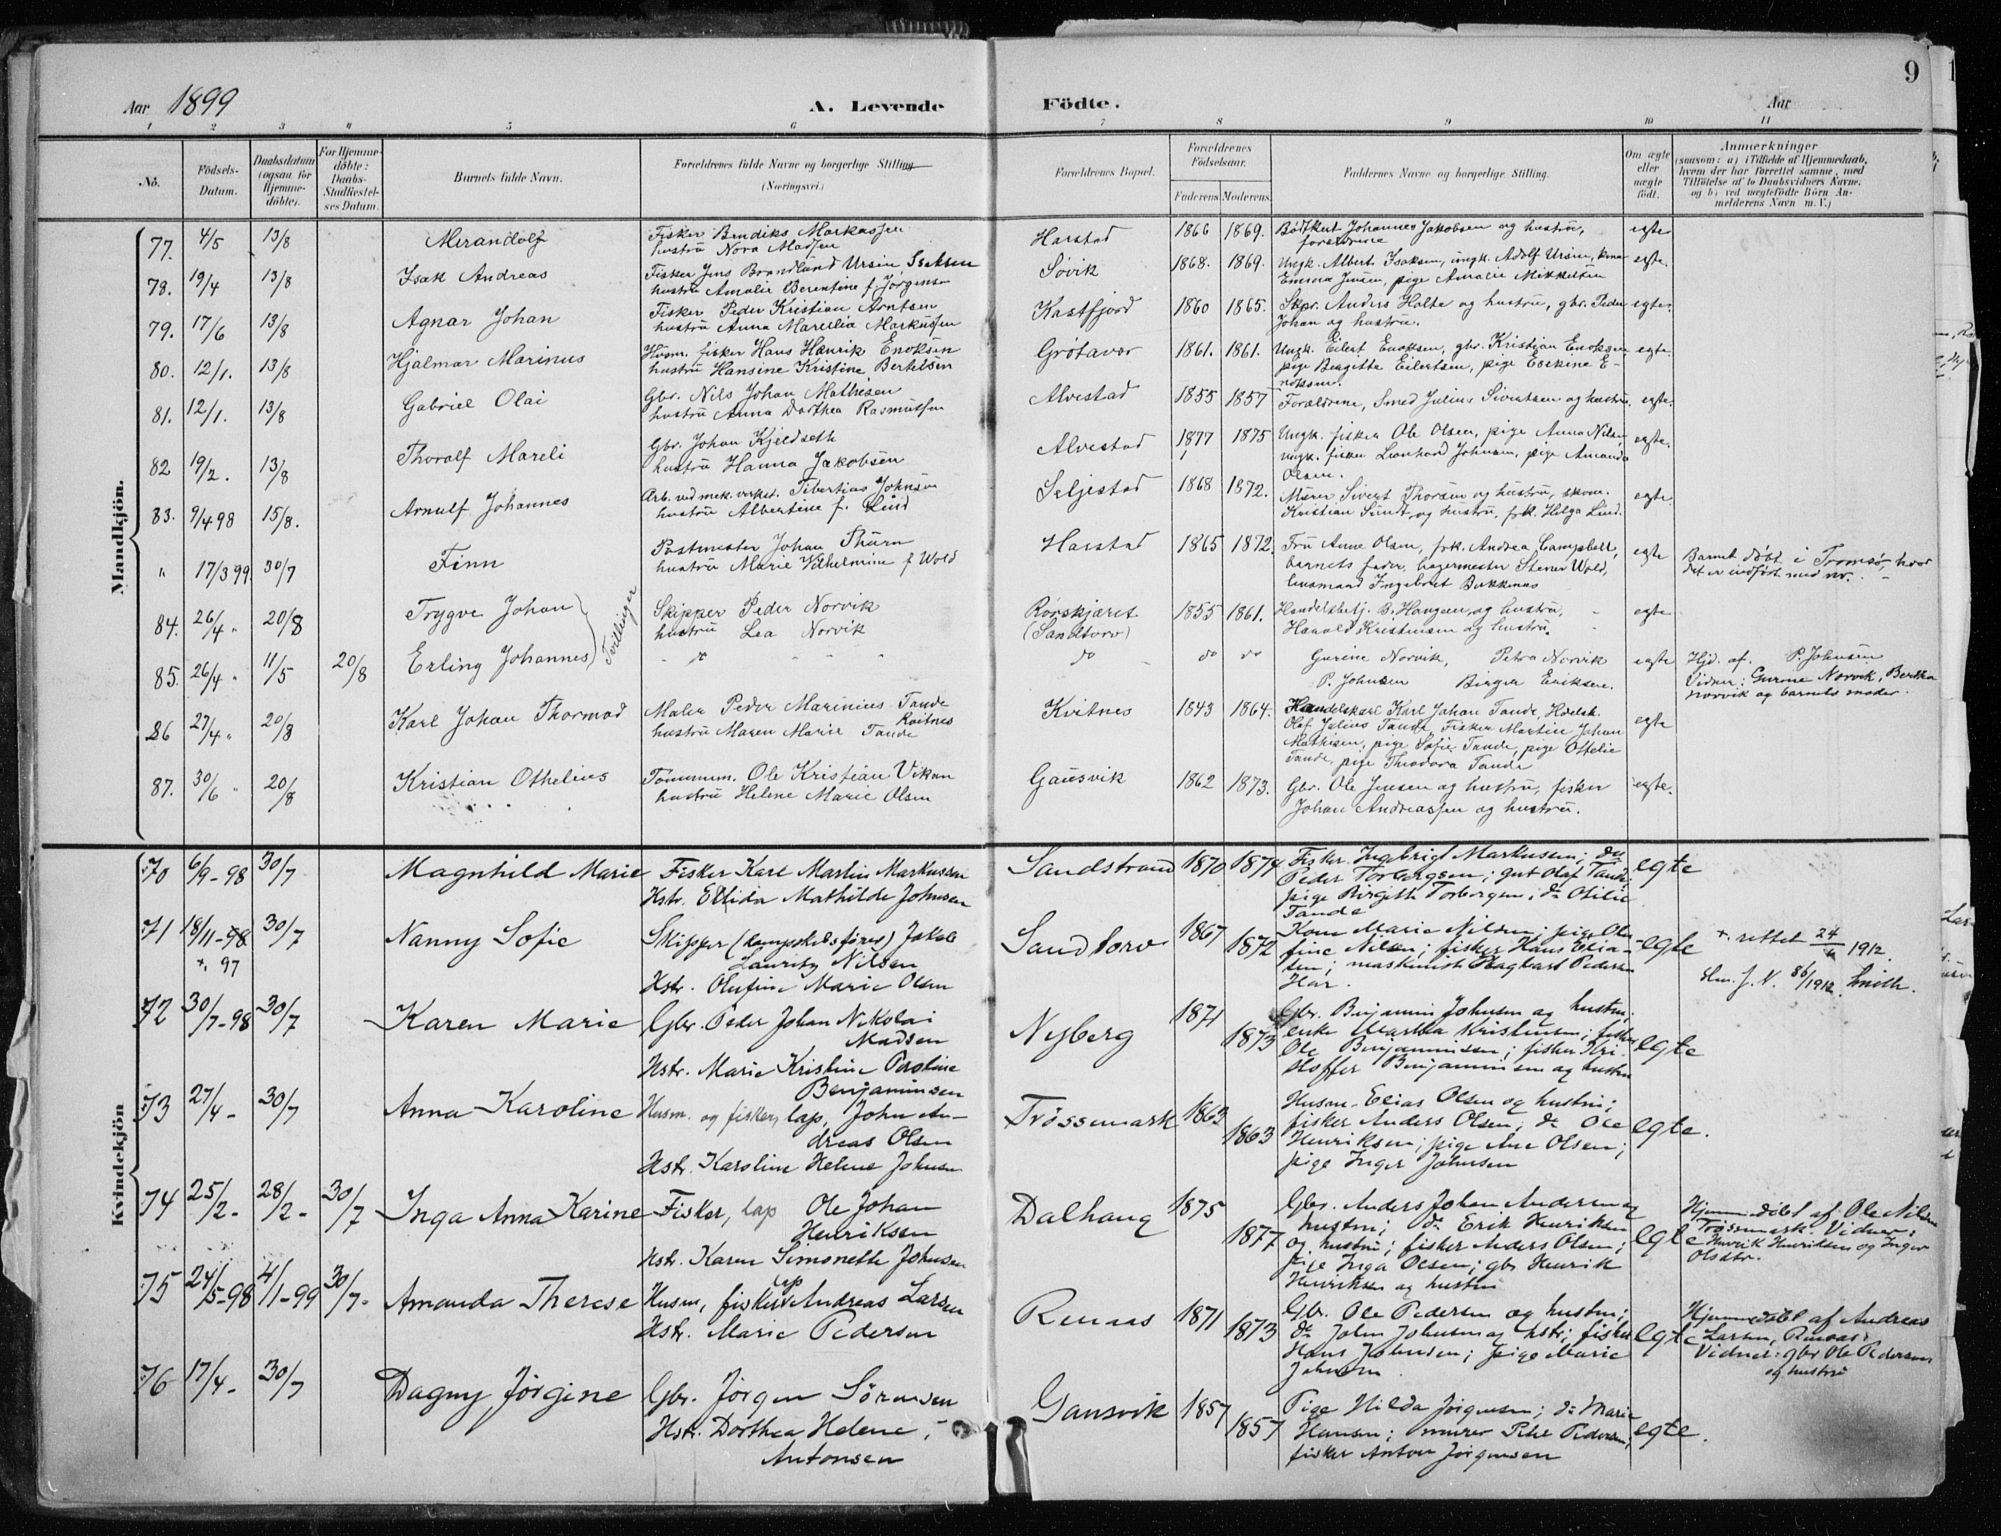 9
Aar 1899 A. Levende Födte. Aar
1 2 3 4 5 6 7 8 9 10 11
No.
Födsels-Datum.
Daabsdatum (ogsaa for Hjemme-döbte).
For Hjemme-döbte: Daabs-Stadfæstel-ses Datum.
Barnets fulde Navn.
Forældrenes fulde Navne og borgerlige Stilling
(Næringsvei.)
Forældrenes Bopæl.
Forældrenes Födselsaar.
Faderens. Moderens.
Faddernes Navne og borgerlige Stilling.
Om ægte eller uægte födt.
Anmærkninger
(saasom: a) i Tilfælde af Hjemmedaab,
hvem der har forrettet samme, med
Tilföielse af to Daabsvidners Navne,
og b) ved uægtefödte Börn An-
melderens Navn m. V.)
Mandkjön.
77. 4/5 13/8 Merandolf Fisker Bendiks Markussen Harstad 1866 1869. Bødtker Johannes Jakobsen og hustru, egte
hustru Nora Madsen forældrene
78. 19/4 13/8 Isak Andreas Fisker Jens Brandlund Ursin Isaksen Søvik 1868. 1869. Ungk. Albert Isaksen, ungk. Adolf Ursin, kone egte.
hustru Amalie Berentine f. Jørgensen Emma Jensen, pige Amalie Mikkelsen
79. 17/6 13/8 Agnar Johan Fisker Peder Kristian Arntsen Kastfjord 1860 1865. Skpr. Anders Holte og hustru, gbr. Peder egte.
hustru Anna Marselia Markussen Johan og hustru.
80. 12/1. 13/8 Hjalmar Marinus Husm. fisker Hans Henrik Enoksen Grøtavær 1861. 1861. Ungk. Eilert Enoksen, gbr. Kristian Enoksen egte.
hustru Hansine Kristine Bertelsen pige Bergitte Eilertsen, pige Esekine E-
noksen.
81. 12/1. 13/8 Gabriel Olai Gbr. Nils Johan Mathisen Alvestad 1855 1857 Forældrene, Smed Julius Sivertsen og hustru. egte.
hustru Anna Dorthea Rasmussen
82 19/2. 13/8 Thoralf Mareli Gbr. Johan Kjeldseth Alvestad 1877 1875 Ungk. fisker Ole Olsen, pige Anna Nilsen egte.
hustru Hanna Jakobsen ungk. fisker Leonhard Johnsen, pige Amanda
Olsen.
83. 9/4 98 15/8. Arnulf Johannes Arb. ved mek. verkst. Tibertias Johnsen Seljestad 1868 1872. Murer Sivert Thorsen og hustru, skom. egte
hustru Albertine f. Lind Kristian Sundt og hustru, frk. Helga Lind.
" 17/3 99. 30/7 Finn Postmester Johan Thurn Harstad 1865 1872. Fru Anne Olsen, frk. Andrea Campbell, egte Barnet døbt i Tromsø, hvor
hustru Marie Vilhelmine f Wold barnets fader, bagermester Stener Wold, det er indført med nr. -
lensmand Ingebret Bukkenæs
84. 26/4 " 20/8 Trygve Johan Skipper Peder Norvik Rørskjæret 1855 1861. Handelsbetj. B. Hangen og hustru, egte
Tvillinger hustru Lea Norvik (Sandtorv) Harald Kristensen og hustru.
85. 26/4 " 11/5 20/8 Erling Johannes - do - - do - do do Gurine Norvik, Petra Norvik egte Hjd. af P. Johnsen
P. Johnsen Birger Eriksen. Vidner: Gurine Norvik, Berdha
Norvik og barnets moder.
86 27/4 " 20/8 Karl Johan Thormod Maler Peder Marinius Tande Kvitnes 1843 1864. Handelskarl Karl Johan Tande, Handelsk. egte
Kvitnes
hustru Maren Marie Tande Olaf Julius Tande, Fisker Martin Johan
Mathisen, pige Sofie Tande, pige Ottelie
Tande, pige Theodora Tande
87. 30/6 " 20/8 Kristian Othelius Tømmerm. Ole Kristian Vikan Gausvik 1862 1873. Gbr. Ole Jensen og hustru, fisker egte.
hustru Helene Marie Olsen Johan Andreassen og hustru.
Kvindekjön
70 6/9-98 30/7 Magnhild Marie Fisker Karl Martin Markussen Sandstrand 1870 1874 Fisker Ingebrigt Markusen; do egte
Hstr. Ellida Mathilde Johnsen Peder Torbergsen; gut Olaf Tande;
pige Birgith Torbergsen; do Otilie
Tande
71 18/11-98 30/7 Nanny Sofie Skipper (dampskibsfører) Jakob Sandtorv 1867 1872 Kone Marie Nilsen; pige Olu- egte +. rettet 24/6 1912.
+. 97 Lauritz Nilsen fine Nilsen; fisker Hans Elia-
Hstr. Olufine Marie Olsen sen; maskinist Hagbart Pedersen Skm. J. N. 86/1912. Smith.
Har.
72 30/7-98 30/7 Karen Marie Gbr. Peder Johan Nikolai Nyberg 1871 1873 Gbr. Benjamin Johnsen og hustru; egte
Madsen enke Martha Kristensen; fisker
Hstr. Marie Kristine Peroline Ole Benjaminsen; fisker Kri-
Benjaminsen stoffer Benjaminsen og hustru
73 27/4- 30/7 Anna Karoline Husm. og fisker, lap, John An- Trøssemark 1863 1863 Husm. Elias Olsen og hustru; egte.
dreas Olsen fisker Anders Olsen; do Ole
Hstr. Karoline Helene Johnsen Henriksen; pige Ane Olsen;
pige Inger Johnsen
74 25/2- 28/2- 30/7 Inga Anna Karine Fisker, lap Ole Johan Dalhaug 1875 1877 Gbr. Anders Johan Andersen og egte Hjemmedøbt af Ole Nilsen
Henriksen hustru; do Erik Henriksen Trøssemark. Vidner:
Hstr. Karen Simonette Johnsen og hustru; fisker Anders Olsen; Henrik Henriksen og Inger
pige Inga Olsen; gbr Henrik Olsdtr.
Henriksen og hustru
75 24/5-98 4/1-99 30/7- Amanda Therese Husm, fisker Andreas Larsen Renaas 1871 1873 Gbr. Ole Pedersen og hustru; egte Hjemmedøbt af Andreas
Hstr. Marie Pedersen do John Johnsen og hstr; fisker Larsen, Renaas.
Hans Johnsen; pige Marie Vidner: gbr Ole Pedersen
Johnsen og hustru
76 17/4- 30/7 Dagny Jørgine Gbr. Jørgen Sørensen Gausvik 1857 1857 Pige Hilda Jørgensen; do Marie egte.
Hstr. Dorthea Helene Hansen; murer Peder Pedersen;
Antonsen fisker Anton Jørgensen